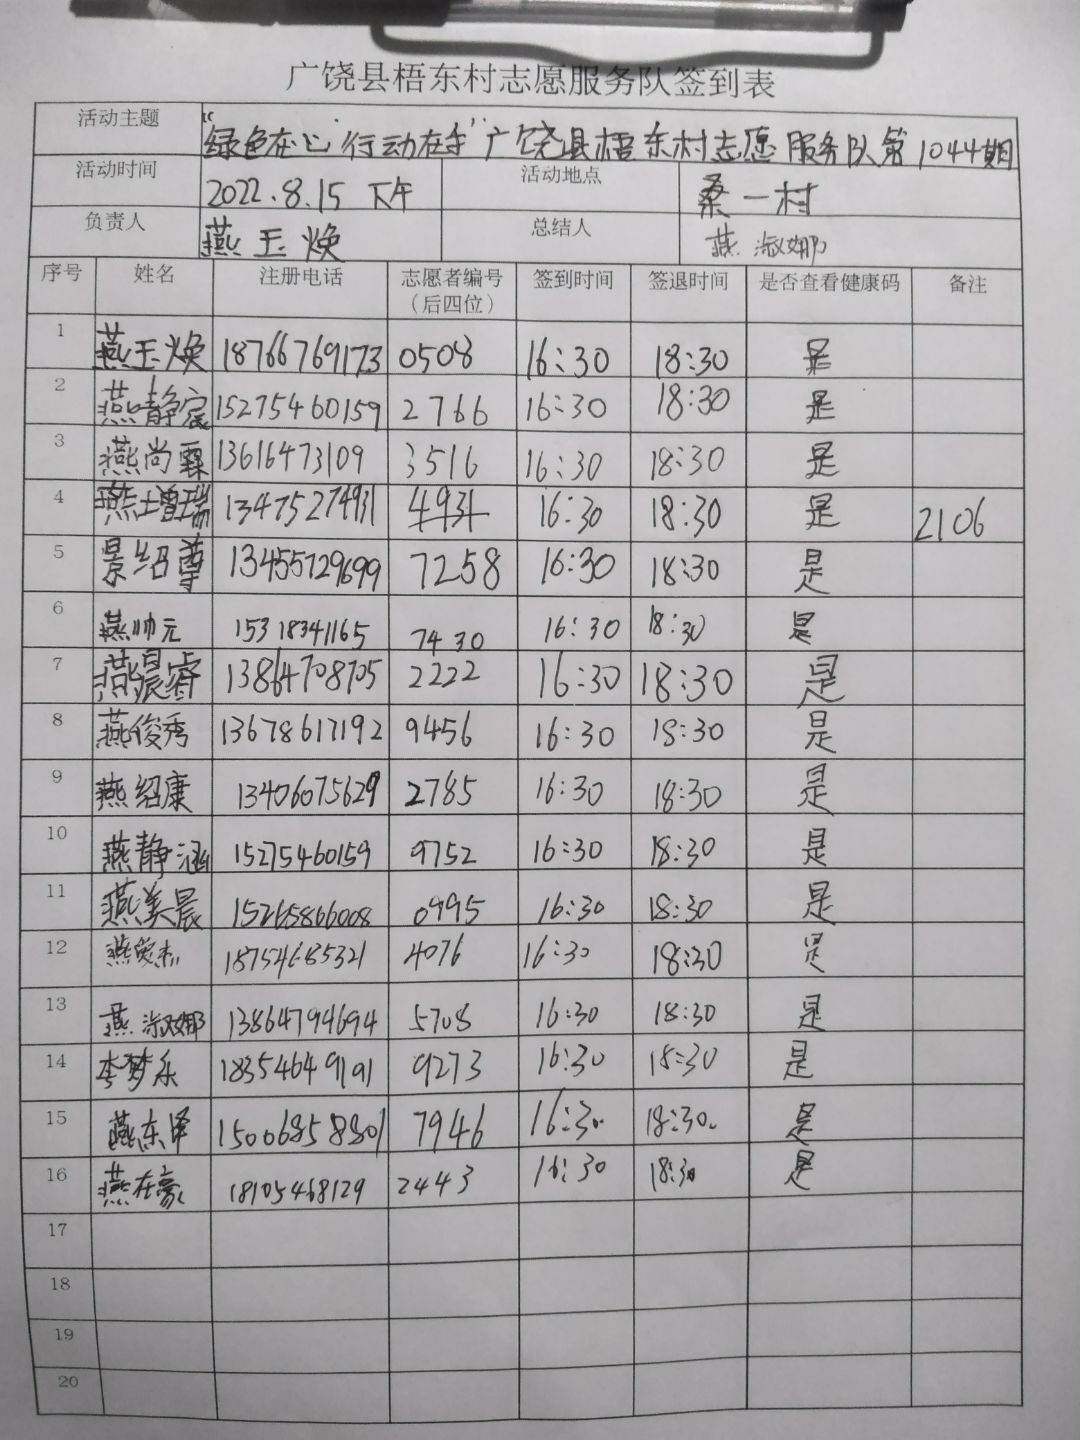 广饶县梧东村志愿服务队签到表
活动主题 “绿色在心 行动在手”广饶县梧东村志愿服务队第1044期
活动时间 2022.8.15 下午 活动地点 桑一村
负责人 燕玉焕 总结人 燕淑娜
序号 姓名 注册电话 志愿者编号（后四位） 签到时间 签退时间 是否查看健康码 备注
1 燕玉焕 18766769173 0508 16:30 18:30 是
2 燕静宸 15275460159 2766 16:30 18:30 是
3 燕尚霖 13616473109 3516 16:30 18:30 是
4 燕增瑞 13475274931 4931 16:30 18:30 是 2106
5 景绍尊 13455729699 7258 16:30 18:30 是
6 燕帅元 15318341165 7430 16:30 18:30 是
7 燕晨睿 13864708705 2222 16:30 18:30 是
8 燕俊秀 13678617192 9456 16:30 18:30 是
9 燕绍康 13406075629 2785 16:30 18:30 是
10 燕静涵 15275460159 9752 16:30 18:30 是
11 燕美晨 15265866008 0995 16:30 18:30 是
12 燕荣杰 18754685321 4076 16:30 18:30 是
13 燕淑娜 13864794694 5708 16:30 18:30 是
14 李梦乐 18354649191 9273 16:30 18:30 是
15 燕东泽 15006858801 7946 16:30 18:30 是
16 燕在豪 18105468129 2443 16:30 18:30 是
17
18
19
20